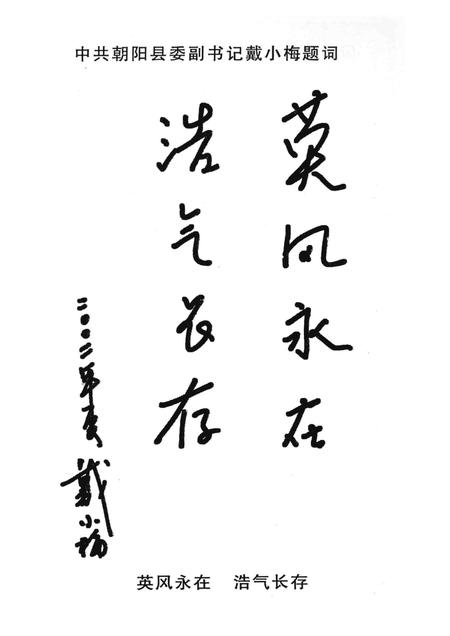 中共朝阳县委副书记戴小梅题词
英风永在
浩气长存
二〇〇二年夏
戴小梅
英风永在 浩气长存